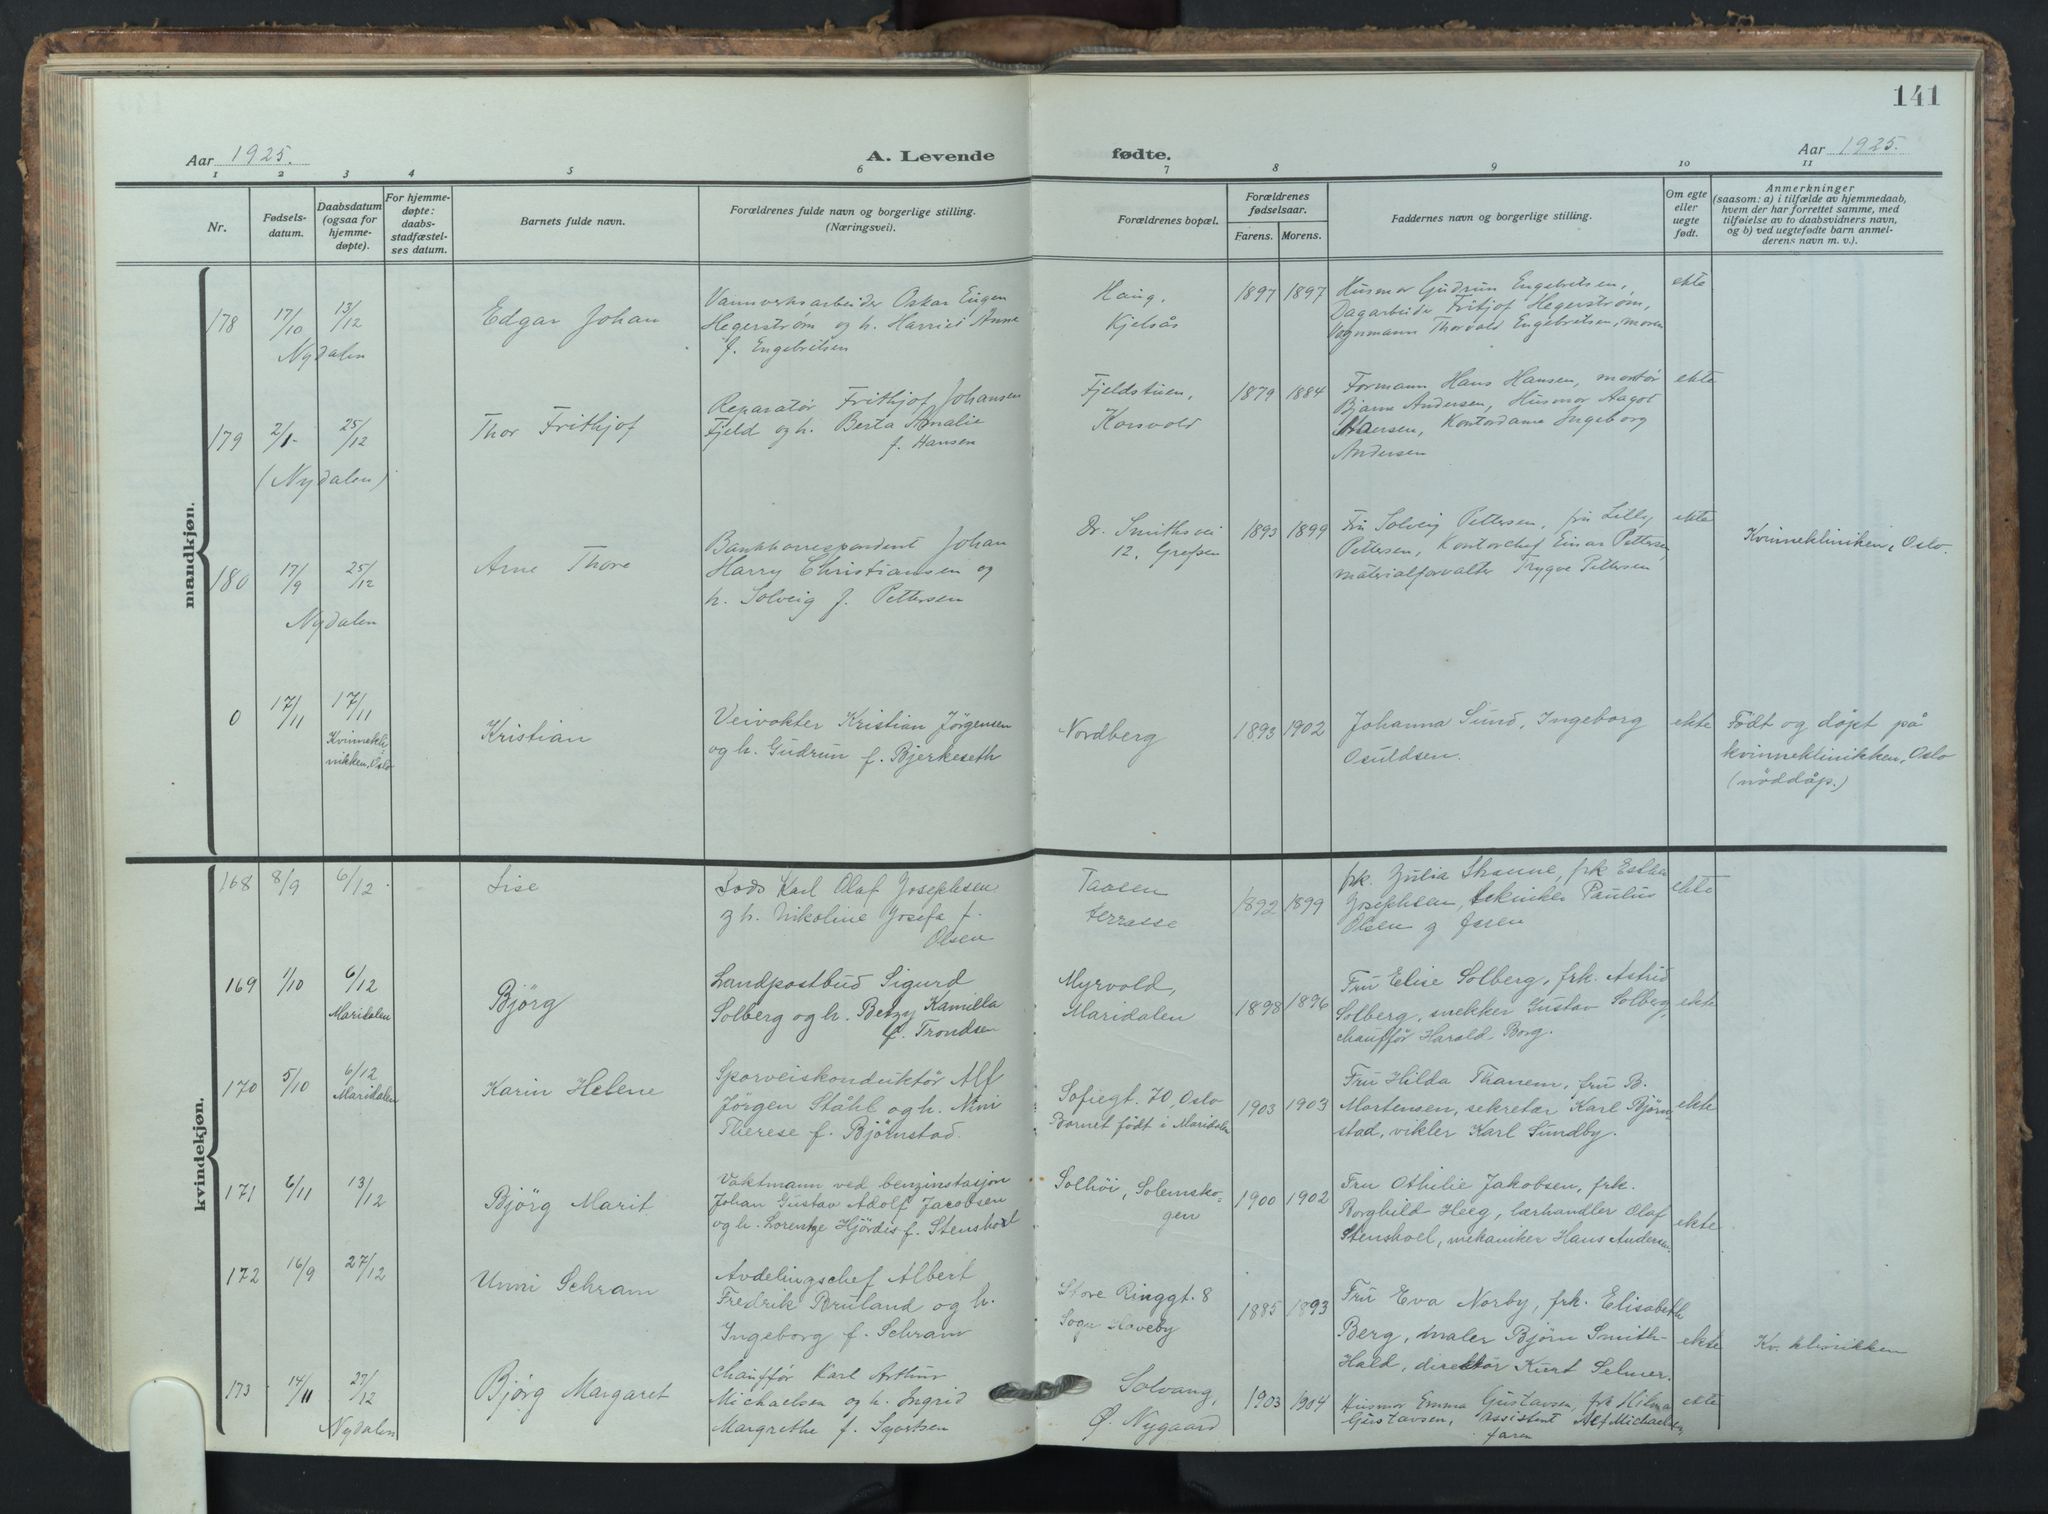 141
Aar 1925.
A. Levende fødte.
Aar 1925.
1 2 3 4 5 6 7 8 9 10 11
Nr.
Fødsels-
datum.
Daabsdatum
(ogsaa for
hjemme-
døpte).
For hjemme-
døpte:
daabs-
stadfæstel-
ses datum.
Barnets fulde navn.
Forældrenes fulde navn og borgerlige stilling.
(Næringsvei).
Forældrenes bopæl.
Forældrenes
fødselsaar.
Farens. Morens.
Faddernes navn og borgerlige stilling.
Om egte
eller
uegte
født.
Anmerkninger
(saasom: a) i tilfælde av hjemmedaab,
hvem der har forrettet samme, med
tilføielse av to daabsvidners navn,
og b) ved uegtefødte barn anmel-
derens navn m. v.).
mandkjøn.
178
17/10
13/12
Nydalen
Edgar Johan
Vannverksarbeider Oskar Eugen
Hegerstrøm og h. Harriet Anne
f. Engebritsen
Haug,
Kjelsås
1897 1897
Husmor Gudrun Engebritsen,
Dagarbeider Fritjof Hegerstrøm,
Vognmann Thorvald Engebritsen, moren
ekte
179
2/1
25/12
(Nydalen)
Thor Frithjof
Reparatør Frithjof Johansen
Fjeld og h. Berta Amalie
f. Hansen
Fjeldstuen,
Korsvold
1879 1884
Formann Hans Hansen, montør
Bjarne Andersen, Husmor Aagot
Hansen, Kontordame Ingeborg
Andersen
ekte
180
17/9
25/12
Nydalen
Arne Thore
Bankkorrespondent Johan
Harry Christiansen og
h. Solveig f. Pettersen
Dr. Smithsvei
12, Grefsen
1893 1899
Fru Solveig Pettersen, fru Lilly
Pettersen, Kontorchef Einar Pettersen,
materialforvalter Trygve Pettersen
ekte
Kvinnekliniken, Oslo.
0
17/11
17/11
Kvinnekli-
nikken, Oslo
Kristian
Veivokter Kristian Jørgensen
og h. Gudrun f. Bjerkeseth
Nordberg
1893 1902
Johanna Sund, Ingeborg
Osuldsen.
ekte
Født og døpt på
kvinneklinikken, Oslo
(nøddåp.)
kvindekjøn.
168
8/9
6/12
Lise
Lods Karl Olaf Josephsen
og h. Nikoline Josefa f.
Olsen
Taasen
terrasse
1892 1899
frk. Julia Stranne, frk Esther
Josephsen, tekniker Paulus
Olsen og faren
ekte
169
1/10
6/12
Maridalen
Bjørg
Landpostbud Sigurd
Solberg og h. Betzy Kamilla
f. Trondsen
Myrvold,
Maridalen
1898 1896
Fru Elise Solberg, frk. Astrid
Solberg, snekker Gustav Solberg,
chauffør Harald Borg.
ekte
170
5/10
6/12
Maridalen
Karin Helene
Sporveiskonduktør Alf
Jørgen Ståhl og h. Nini
Therese f. Bjørnstad.
Sofiegt. 70, Oslo
Barnet født i Maridalen
1903 1903
Fru Hilda Thanem, fru B.
Mortensen, sekretær Karl Bjørn-
stad, vikler Karl Sundby.
ekte
171
6/11
13/12
Bjørg Marit
Vaktmann ved benzinstasjon
Johan Gustav Adolf Jacobsen
og h. Lorentze Hjørdis f. Stenshoel
Solhöi, Solemsko-
gen
1900 1902
Fru Othilie Jakobsen, frk.
Borghild Heeg, lærhandler Olaf
Stenshoel, mekaniker Hans Andersen.
ekte
172
16/9
27/12
Unni Schram
Avdelingschef Albert
Fredrik Bruland og h.
Ingeborg f. Schram
Store Ringgt. 8
Sogn Haveby
1885 1893
Fru Eva Norby, frk. Elisabeth
Berg, maler Bjørn Smith-
Hald, direktør Kurt Selmer.
ekte
Kv. klinikken
173
14/11
27/12
Nydalen
Bjørg Margaret
Chauffør Karl Arthur
Michaelsen og h. Ingrid
Margrethe f. Syvertsen
Solvang,
Ø. Nygaard
1903 1904
Husmor Emma Gustavsen, frk Hilma
Gustavsen, Assistent Alf Michaelsen,
faren
ekte